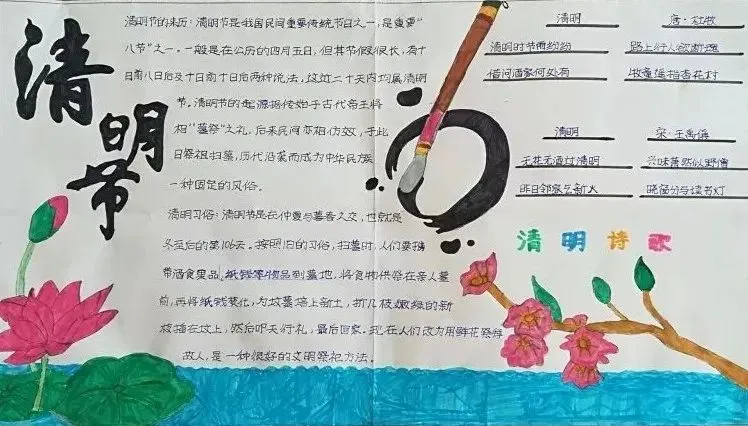 清明节
清明节的来历：清明节是我国民间重要传统节日之一，是重要“
八节”之一。一般是在公历的四月五日，但其节假很长，有十
日前八日后及十日前十日后两种说法，这近二十天内均属清明
节。清明节的起源据传始于古代帝王将
相“墓祭”之礼，后来民间亦相仿效，于此
日祭祖扫墓，历代沿袭而成为中华民族
一种固定的风俗。
清明习俗：清明节是在仲夏与暮春之交，也就是
冬至后的第106天。按照旧的习俗，扫墓时，人们要携
带酒食果品，纸钱等物品到墓地，将食物供祭在亲人墓
前，再将纸钱焚化，为坟墓培上新土，折几枝嫩绿的新
枝插在坟上，然后叩头行礼，最后回家。现在人们改为用鲜花祭拜
故人，是一种很好的文明祭祀方法。
清明 唐·杜牧
清明时节雨纷纷 路上行人欲断魂
借问酒家何处有 牧童遥指杏花村
清明 宋·王禹偁
无花无酒过清明 兴味萧然似野僧
昨日邻家乞新火 晓窗分与读书灯
清明诗歌